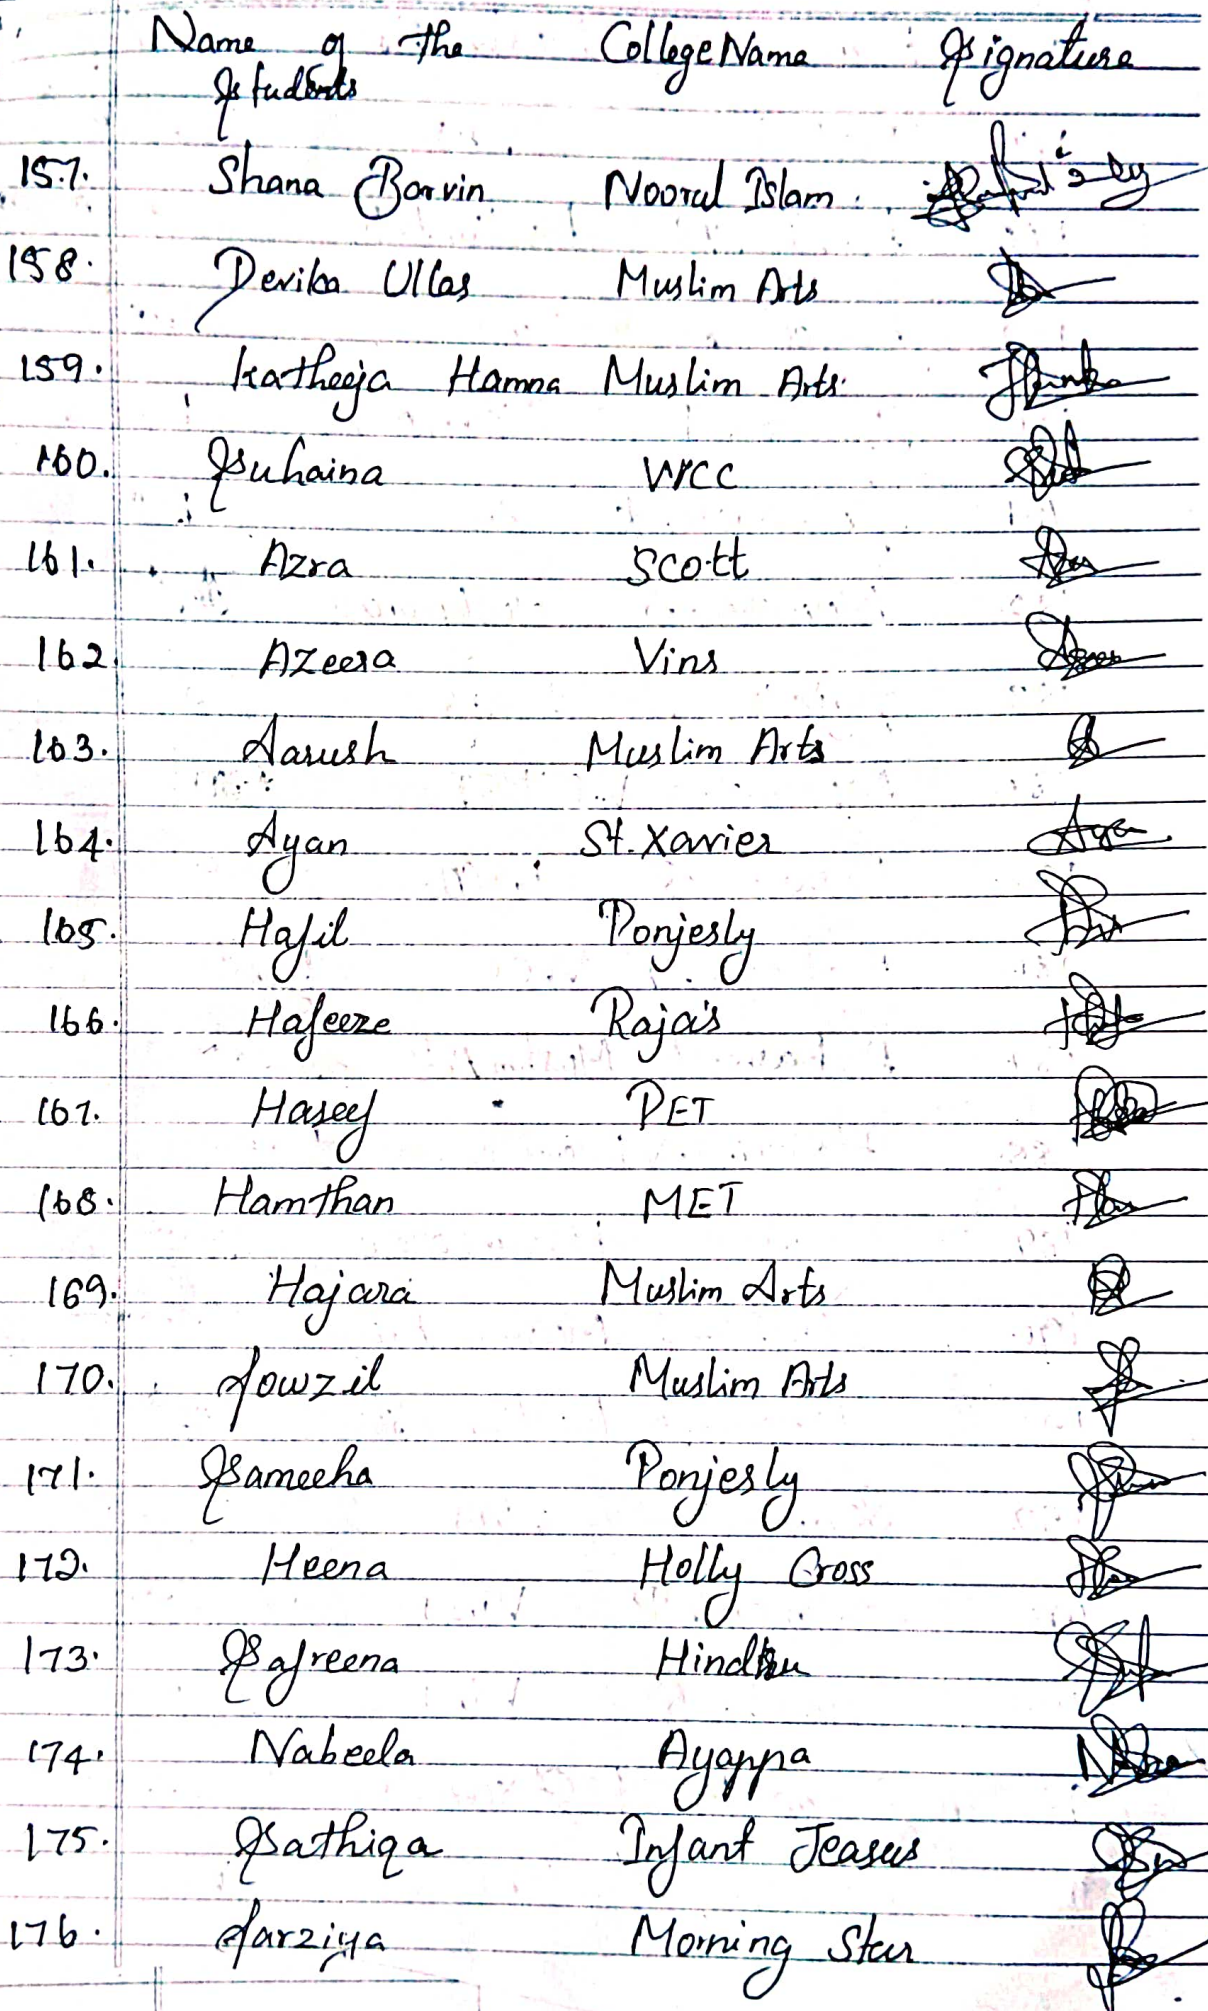 Name of the College Name Signature
Students
157. Shana Barvin Noorul Islam
158. Devika Ullas Muslim Arts
159. Katheeja Hamna Muslim Arts.
160. Suhaina WCC
161. Azra Scott
162. Azeera Vins
163. Aarush Muslim Arts
164. Ayan St. Xavier
165. Hafil Ponjesly
166. Hafeeze Raja's
167. Haseef PET
168. Hamthan MET
169. Hajara Muslim Arts
170. Fowzil Muslim Arts
171. Sameeha Ponjesly
172. Heena Holly Cross
173. Safreena Hindhu
174. Nabeela Ayappa
175. Sathiqa Infant Jeasus
176. Farziya Morning Star